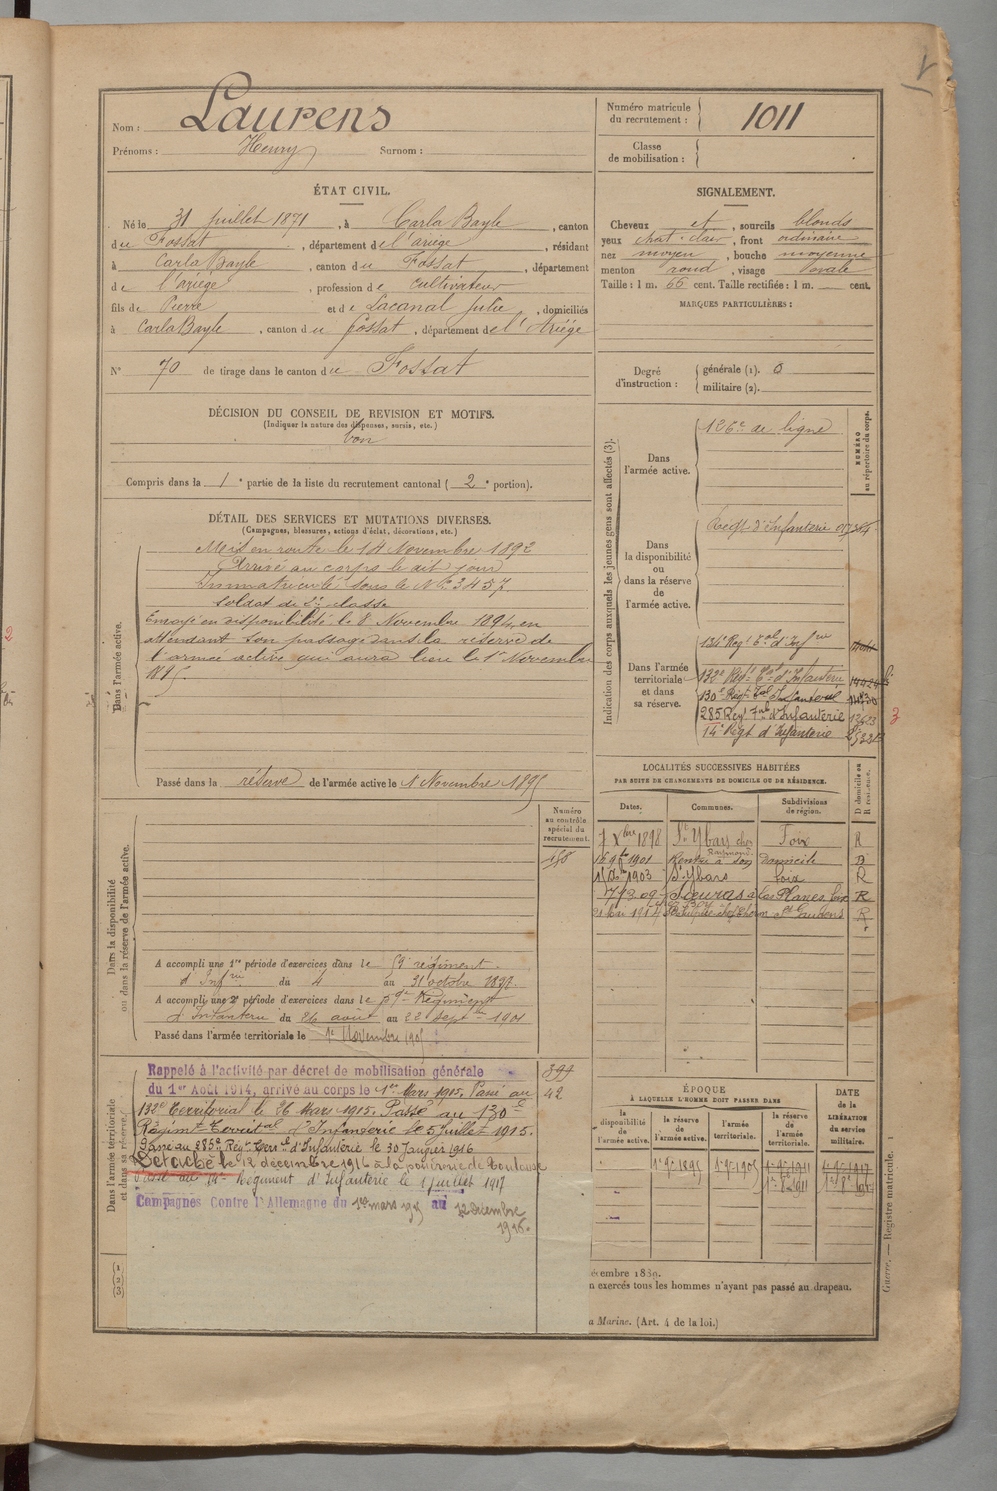 Nom : Laurens
Prénoms : Henry Surnom :
Numéro matricule du recrutement : 1011
Classe de mobilisation :
ÉTAT CIVIL.
Né le 31 juillet 1871, à Carla Bayle, canton
du Fossat, département de l'ariège, résidant
à Carla Bayle, canton du Fossat, département
de l'ariège, profession de cultivateur
fils de Pierre et de Lacanal Julie, domiciliés
à Carla Bayle, canton du Fossat, département de l'Ariège
N° 70 de tirage dans le canton du Fossat
SIGNALEMENT.
Cheveux et, sourcils blonds
yeux chat. clair, front ordinaire
nez moyen, bouche moyenne
menton rond, visage ovale
Taille : 1 m. 65 cent. Taille rectifiée : 1 m. cent.
MARQUES PARTICULIÈRES :
Degré d'instruction : générale (1). 0
militaire (2).
DÉCISION DU CONSEIL DE REVISION ET MOTIFS.
(Indiquer la nature des dispenses, sursis, etc.)
bon
Compris dans la 1e partie de la liste du recrutement cantonal (2e portion).
DÉTAIL DES SERVICES ET MUTATIONS DIVERSES.
(Campagnes, blessures, actions d'éclat, décorations, etc.)
Dans l'armée active.
Mis en route le 14 Novembre 1892
Arrivé au corps le dit jour
Immatriculé sous le N° 3457.
Soldat de 2e classe
Envoyé en disponibilité le 8 Novembre 1894, en
attendant son passage dans la réserve de
l'armée active qui aura lieu le 1er Novembre
1895.
Passé dans la réserve de l'armée active le 1 Novembre 1895
Indication des corps auxquels les jeunes gens sont affectés (3).
NUMÉRO au répertoire du corps.
Dans l'armée active.
126e de ligne
Dans la disponibilité ou dans la réserve de l'armée active.
Regt d'Infanterie
Dans l'armée territoriale et dans sa réserve.
134e Regt Tal d'Infrie
132e Regt Tal d'Infanterie
130e Regt Tal Infanterie
285 Regt Tal d'Infanterie
14e Regt d'Infanterie
3
LOCALITÉS SUCCESSIVES HABITÉES
PAR SUITE DE CHANGEMENTS DE DOMICILE OU DE RÉSIDENCE.
D domicile ou R résidence.
Dates. Communes. Subdivisions de région.
7 Xbre 1898 St Ybars chez Raymond. Foix R
16 9bre 1901 Rentré à son domicile D
1903 St Ybars Foix R
Sieuras à Las Planes Foix R
St Gaudens R
Numéro au contrôle spécial du recrutement.
Dans la disponibilité ou dans la réserve de l'armée active.
A accompli une 1re période d'exercices dans le 59e régiment
d'Infrie du 4 au 31 octobre 1898.
A accompli une 2e période d'exercices dans le 59e Régiment
d'Infanterie du 26 août au 22 septbre 1901
Passé dans l'armée territoriale le 1er Novembre 1905
Dans l'armée territoriale et dans sa réserve.
Rappelé à l'activité par décret de mobilisation générale
du 1er Août 1914, arrivé au corps le 1er Mars 1915. Passé au
42
132e Territorial le 26 Mars 1915. Passé au 130e
Régiment Territal d'Infanterie le 5 juillet 1915.
Passé au 285e Régt Terral d'Infanterie le 30 Janvier 1916
Détaché le 12 décembre 1916 à la poudrerie de Toulouse
Passé au 14e Régiment d'Infanterie le 1 juillet 1917
Campagnes Contre l'Allemagne du 1er mars 1915 au 12 décembre
1916.
ÉPOQUE
À LAQUELLE L'HOMME DOIT PASSER DANS
la disponibilité de l'armée active. la réserve de l'armée active. l'armée territoriale. la réserve de l'armée territoriale.
DATE de la LIBÉRATION du service militaire.
1er 9bre 1895 1er 9bre 1905 1er 9bre 1911 1er 9bre 1917
(1
(2
(3)
écembre 1889.
n exercés tous les hommes n'ayant pas passé au drapeau.
a Marine. (Art. 4 de la loi.)
Guerre. — Registre matricule.